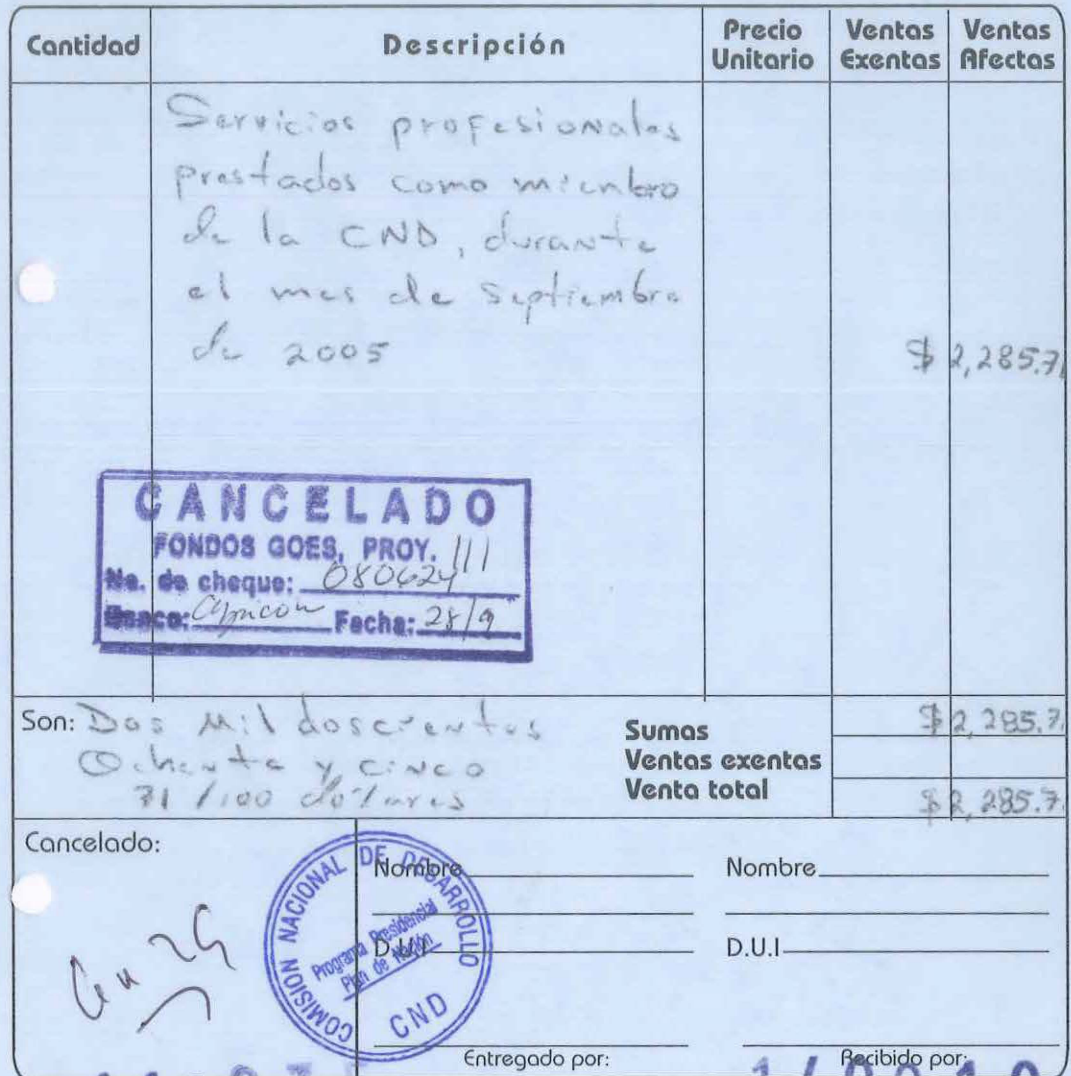 Cantidad Descripción Precio Unitario Ventas Exentas Ventas Afectas
Servicios profesionales
prestados como miembro
de la CND, durante
el mes de Septiembre
de 2005 $ 2,285.7
CANCELADO
FONDOS GOES, PROY. 111
No. de cheque: 080624
Banco: Fecha: 28/9
Son: Dos Mil doscientos
Ochenta y cinco
71/100 dólares
Sumas $ 2,285.7
Ventas exentas
Venta total $ 2,285.7
Cancelado:
COMISION NACIONAL DE DESARROLLO
Programa Presidencial
Plan de Nación
CND
Nombre Nombre
D.U.I D.U.I
Entregado por: Recibido por: